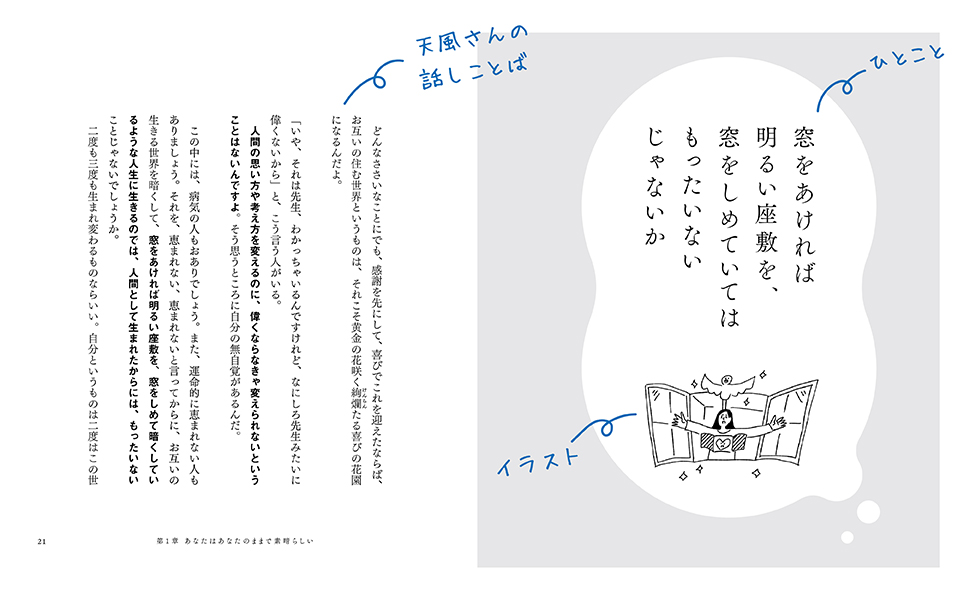 ひとこと
窓をあければ
明るい座敷を、
窓をしめていては
もったいない
じゃないか
イラスト
天風さんの
話しことば
どんなささいなことにでも、感謝を先にして、喜びでこれを迎えたならば、
お互いの住む世界というものは、それこそ黄金の花咲く絢爛たる喜びの花園
げんらん
になるんだよ。
「いや、それは先生、わかっちゃいるんですけれど、なにしろ先生みたいに
偉くないから」と、こう言う人がいる。
人間の思い方や考え方を変えるのに、偉くならなきゃ変えられないという
ことはないんですよ。そう思うところに自分の無自覚があるんだ。
この中には、病気の人もおありでしょう。また、運命的に恵まれない人も
ありましょう。それを、恵まれない、恵まれないと言ってからに、お互いの
生きる世界を暗くして、窓をあければ明るい座敷を、窓をしめて暗くしてい
るような人生に生きるのでは、人間として生まれたからには、もったいない
ことじゃないでしょうか。
二度も三度も生まれ変わるものならいい。自分というものは二度はこの世
第1章 あなたはあなたのままで素晴らしい
21